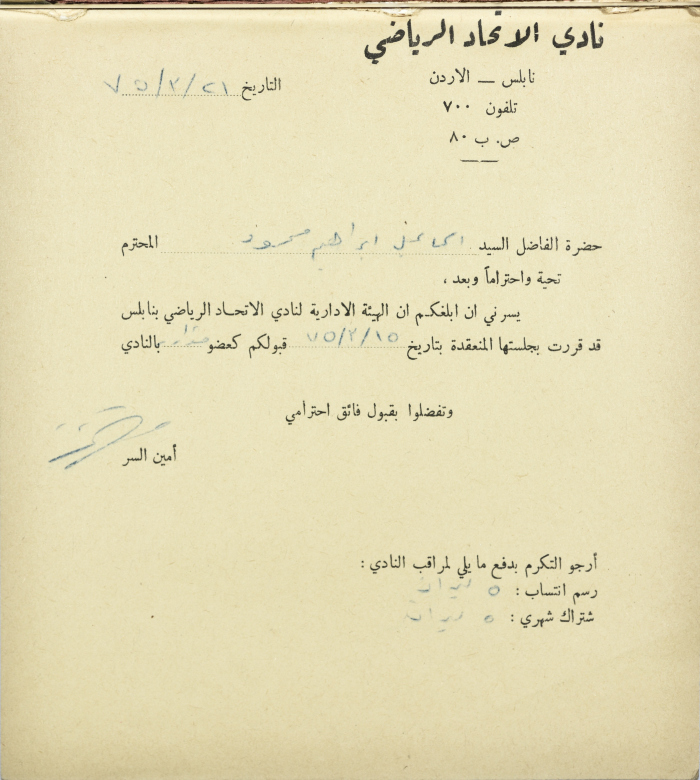 نادي الاتحاد الرياضي
نابلس — الاردن
تلفون ٧٠٠
ص. ب ٨٠
التاريخ ٧٥/٣/٢١
حضرة الفاضل السيد ابراهيم محمود المحترم
تحية واحتراماً وبعد ،
يسرني ان ابلغكم ان الهيئة الادارية لنادي الاتحاد الرياضي بنابلس
قد قررت بجلستها المنعقدة بتاريخ ٧٥/٣/١٥ قبولكم كعضو بالنادي
وتفضلوا بقبول فائق احترامي
أمين السر
أرجو التكرم بدفع ما يلي لمراقب النادي :
رسم انتساب : ٥ ليرات
شتراك شهري : ٥ ليرات